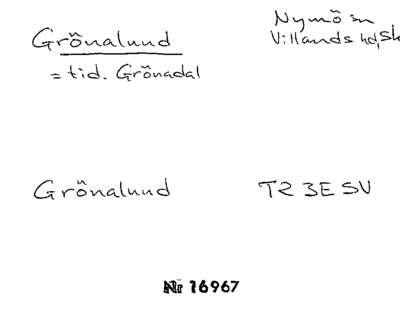 Grönalund
= tid. Grönadal
Nymö sn
Villands hd, Sk
Grönalund
T2 3E SV
Nr 16967